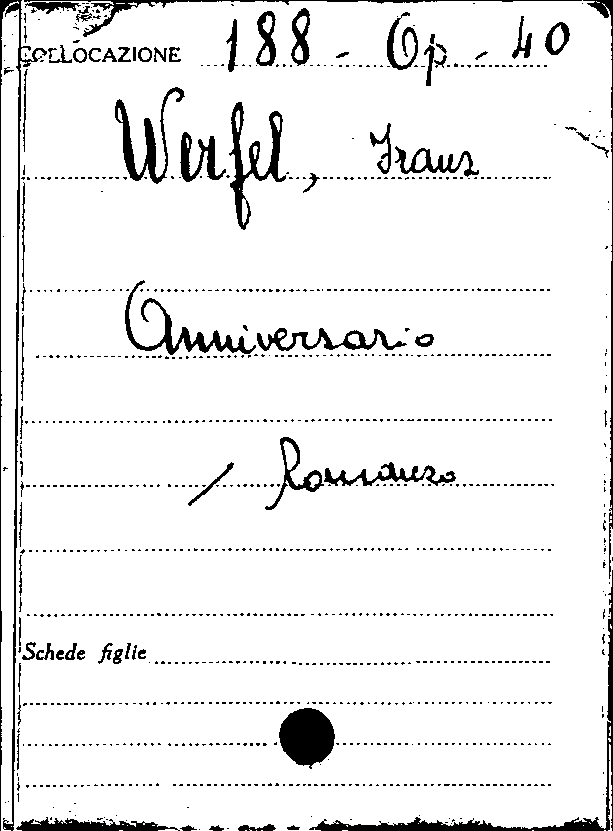 COLLOCAZIONE 188 - Op - 40
Werfel, Franz
Anniversario
/ Romanzo
Schede figlie